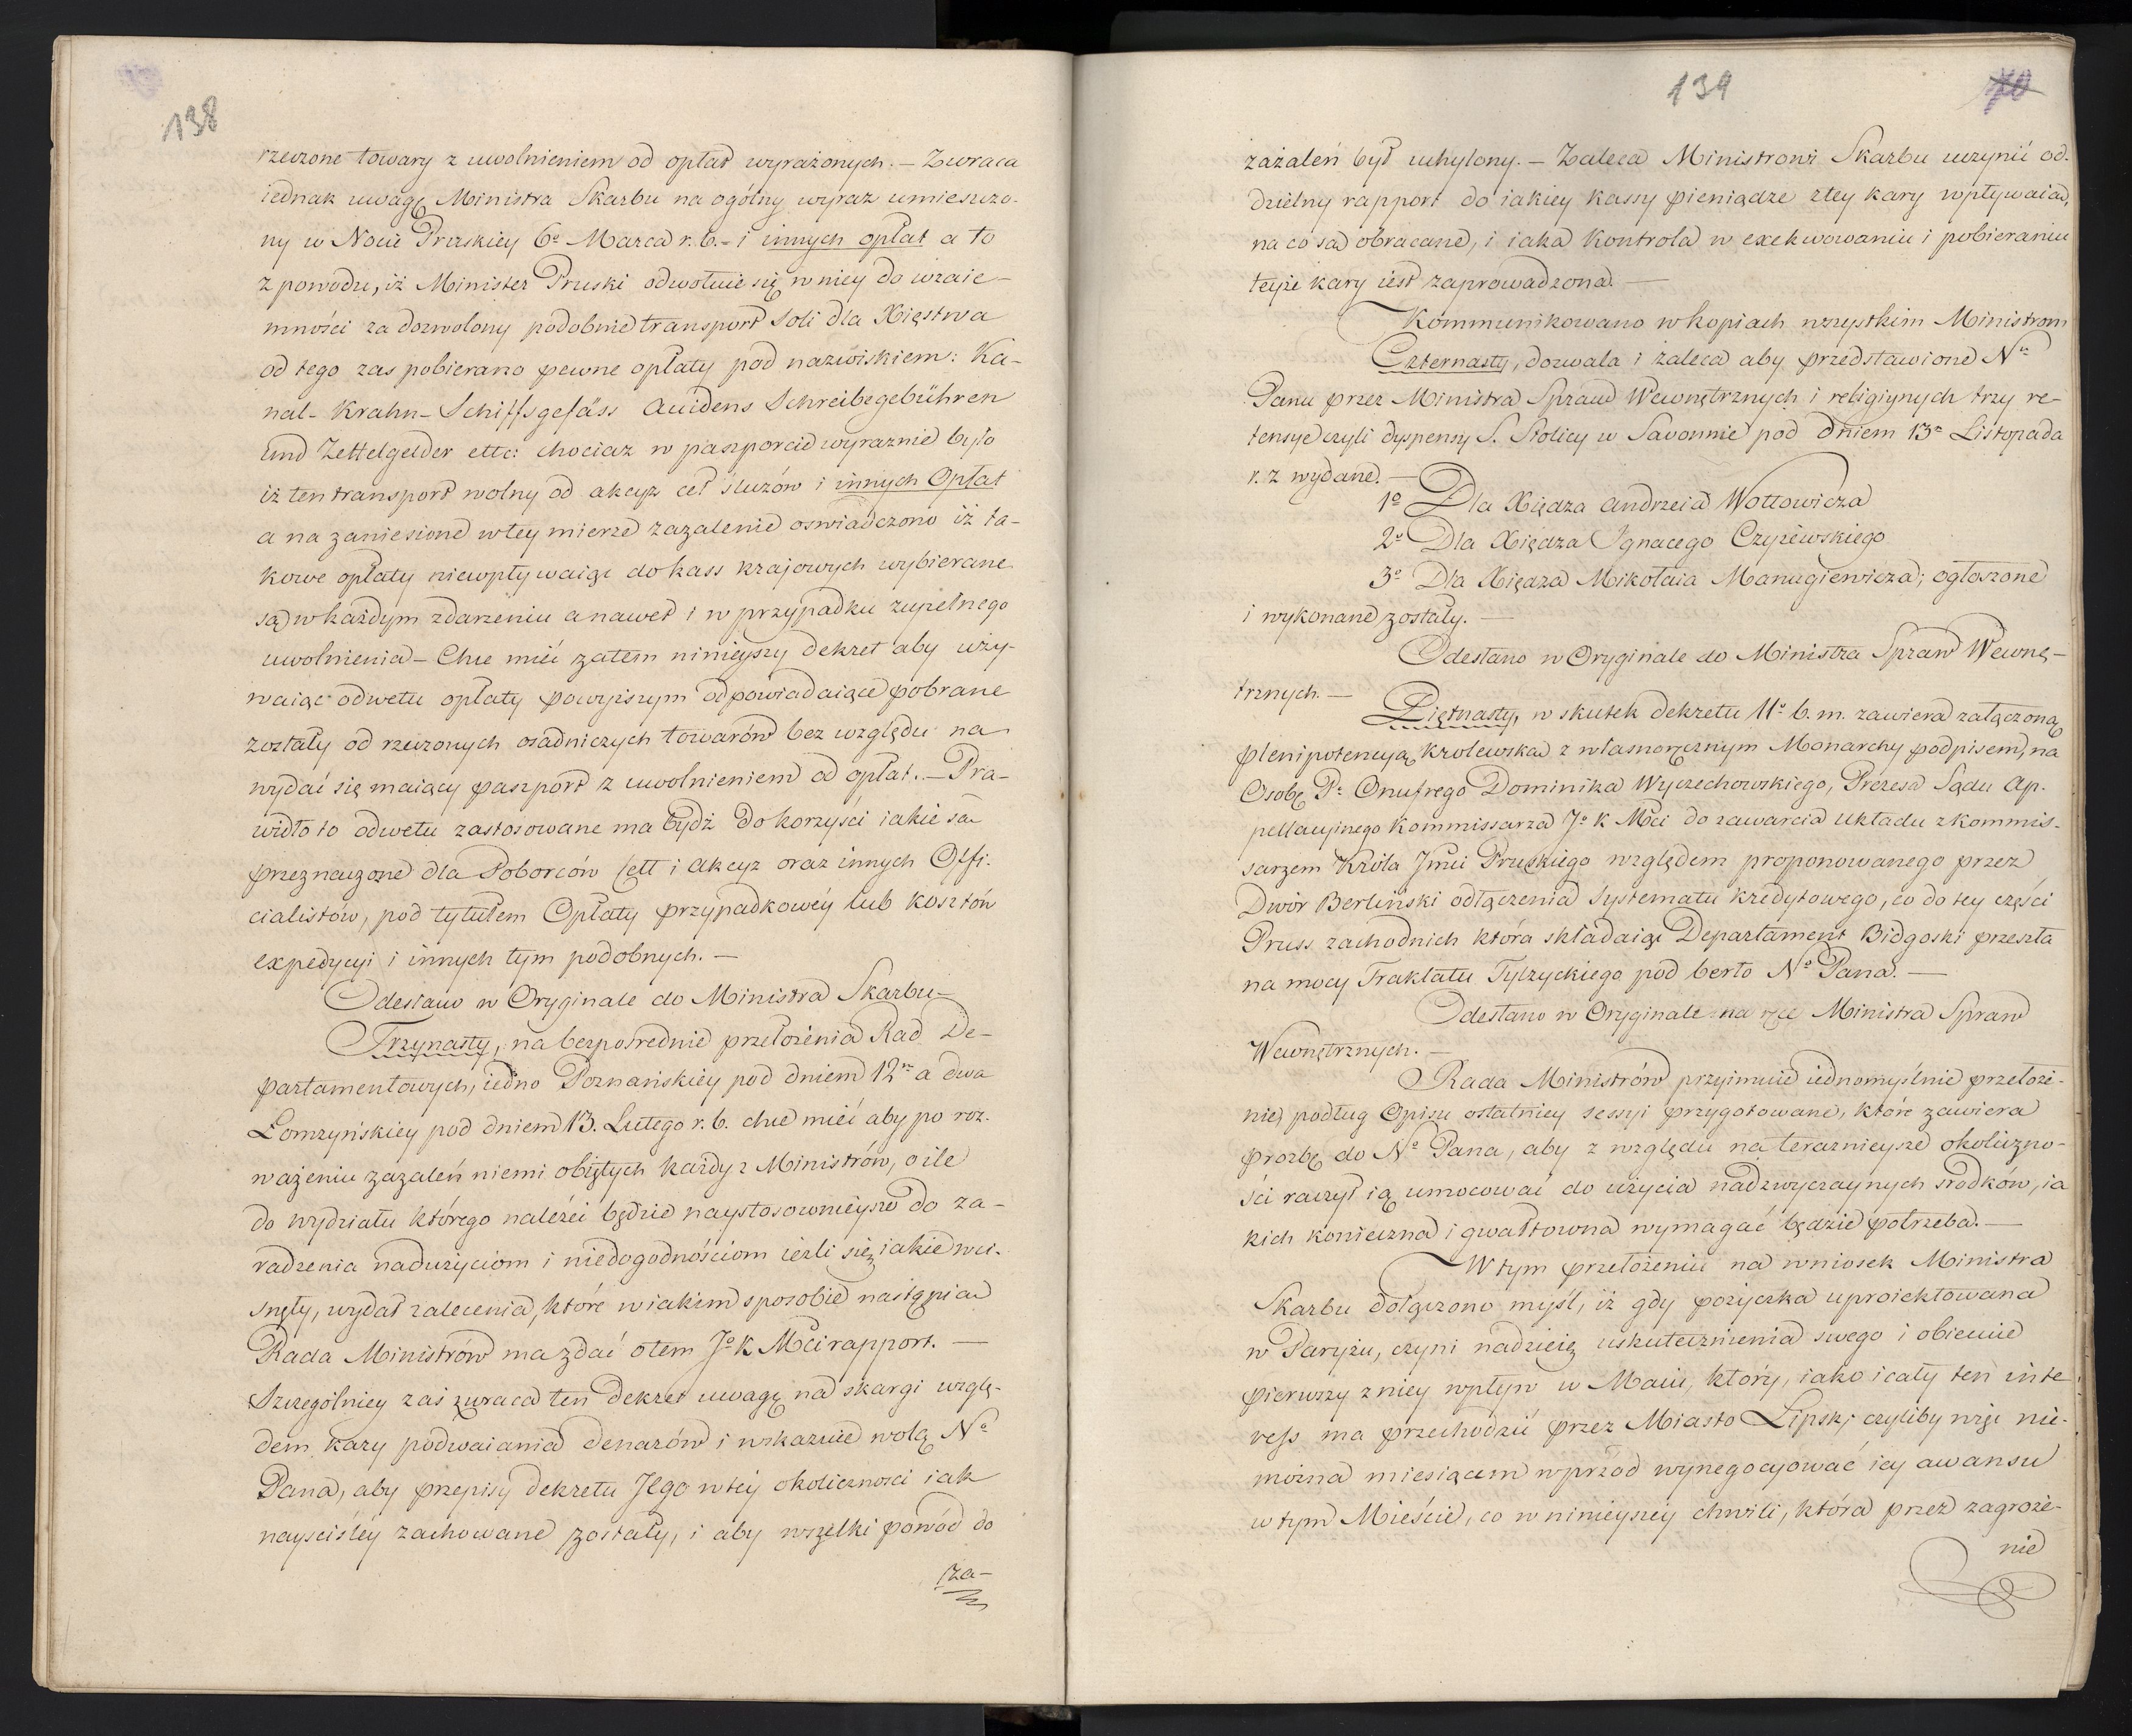 138
rzeczone towary z uwolnieniem od opłat wyrażonych. – Zwraca
iednak uwagę Ministra Skarbu na ogólny wyraz umieszczo-
ny w Nocie Pruskiey 6º Marca r. b. – i innych opłat a to
z powodu, iż Minister Pruski odwołuie się w niey do wzaie-
mności za dozwolony podobnie transport soli dla Xięstwa
od tego zas pobierano pewne opłaty pod nazwiskiem: Ka-
nal- Krahn- Schiffsgefäss Accidens Schreibegebühren
und Zettelgelder etc: chociaz w paszporcie wyraznie było
iż ten transport wolny od akcyz ceł sluzów i innych Opłat
a na zaniesione w tey mierze zazalenie oswiadczono iż ta-
kowe opłaty niewpływaiąc do kass krajowych wybierane
są w każdym zdarzeniu a nawet i w przypadku zupełnego
uwolnienia – Chce mieć zatem ninieyszy dekret aby uży-
waiąc odwetu opłaty powyższym odpowiadaiące pobrane
zostały od rzeczonych osadniczych towarów bez względu na
wydać się maiący paszport z uwolnieniem od opłat. – Pra-
widło to odwetu zastosowane ma bydź do korzyści iakie sa
przeznaczone dla Poborców Cełł i akcyz oraz innych Offi-
cialistów, pod tytułem Opłaty przypadkowéy lub kosztów
expedycyi i innych tym podobnych. –
Odesłano w Oryginale do Ministra Skarbu –
Trzynasty, na bezpośrednie przełożenia Rad De-
partamentowych, iedno Poznańskiey pod dniem 12m a dwa
Łomzyńskiey pod dniem 13. Lutego r. b. chce mieć aby po roz-
ważeniu zazaleń niemi obiętych każdy z Ministrów, o ile
do wydziału którego należéć będzie naystosownieysze do za-
radzenia nadużyciom i niedogodnościom ieżli się iakie wci-
snęły, wydał zalecenia, które w iakim sposobie nastąpią
Rada Ministrów ma zdać o tem Jº K Mci rapport. –
Szczególniey zaś zwraca ten dekret uwagę na skargi wzglę-
dem kary podwaiania denarów i wskazuie wolą Nº
Pana, aby przepisy dekretu Jego w téy okoliczności iak
nayściśléy zachowane zostały, i aby wszelki powód do
za-
139
70
zażaleń był uchylony. – Zaleca Ministrowi Skarbu uczynić od-
dzielny rapport do iakiey kassy pieniądze z tey kary wpływaią,
na co są obracane, i iaka kontrola w exekwowaniu i pobieraniu
teyże kary iest zaprowadzona. –
Kommunikowano w kopiach wszystkim Ministrom
Czternasty, dozwala i zaleca aby przedstawione Nu
Panu przez Ministra Spraw Wewnętrznych i religiynych trzy re-
tensye czyli dyspensy S. Stolicy w Savonnie pod dniem 13m Listopada
r. z wydane. –
1º Dla Xiędza Andrzeia Wottowicza
2º Dla Xiędza Ignacego Czyżewskiego
3º Dla Xiędza Mikołaia Manugiewicza; ogłoszone
i wykonane zostały. –
Odesłano w Oryginale do Ministra Spraw Wewnę-
trznych. –
Piętnasty, w skutek dekretu 11º b. m. zawiera załączoną
plenipotencyą Krolewska z własnoręcznym Monarchy podpisem, na
Osobę Pº Onufrego Dominika Wyczechowskiego, Prezesa Sądu Ap-
pellacyinego Kommissarza Jº K Mci do zawarcia układu z kommis-
sarzem Króla Jmci Pruskiego względem proponowanego przez
Dwór Berliński odłączenia systematu kredytowego, co do tey części
Pruss zachodnich która składaiąc Departament Bidgoski przeszła
na mocy Traktatu Tylzyckiego pod berło Nº Pana. –
Odesłano w Oryginale na ręce Ministra Spraw
Wewnętrznych. –
Rada Ministrów przyimuie iednomyślnie przełoże-
nie, podług Opisu ostatniey sessyi przygotowane, które zawiera
prozbę do Nº Pana, aby z względu na teraznieysze okoliczno-
ści raczył ią umocować do użycia nadzwyczaynych srodków, ia
kich konieczna i gwałtowna wymagać będzie potrzeba. –
W tym przełożeniu na wniosek Ministra
Skarbu dołączono myśl, iż gdy pożyczka uproiektowana
w Paryżu, czyni nadzieię uskutecznienia swego i obiecuie
pierwszy z niey wpływ w Maiu, który, iako i cały ten inte
ress ma przechodzić przez Miasto Lipsk; czyliby więc nie-
można miesiącem wprzód wynegocyować iey awansu
w tym Mieście, co w ninieyszéy chwili, która przez zagroże-
nie